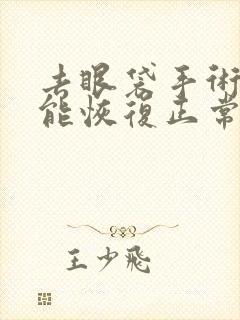 去眼袋手術
能恢復正常
王少飛